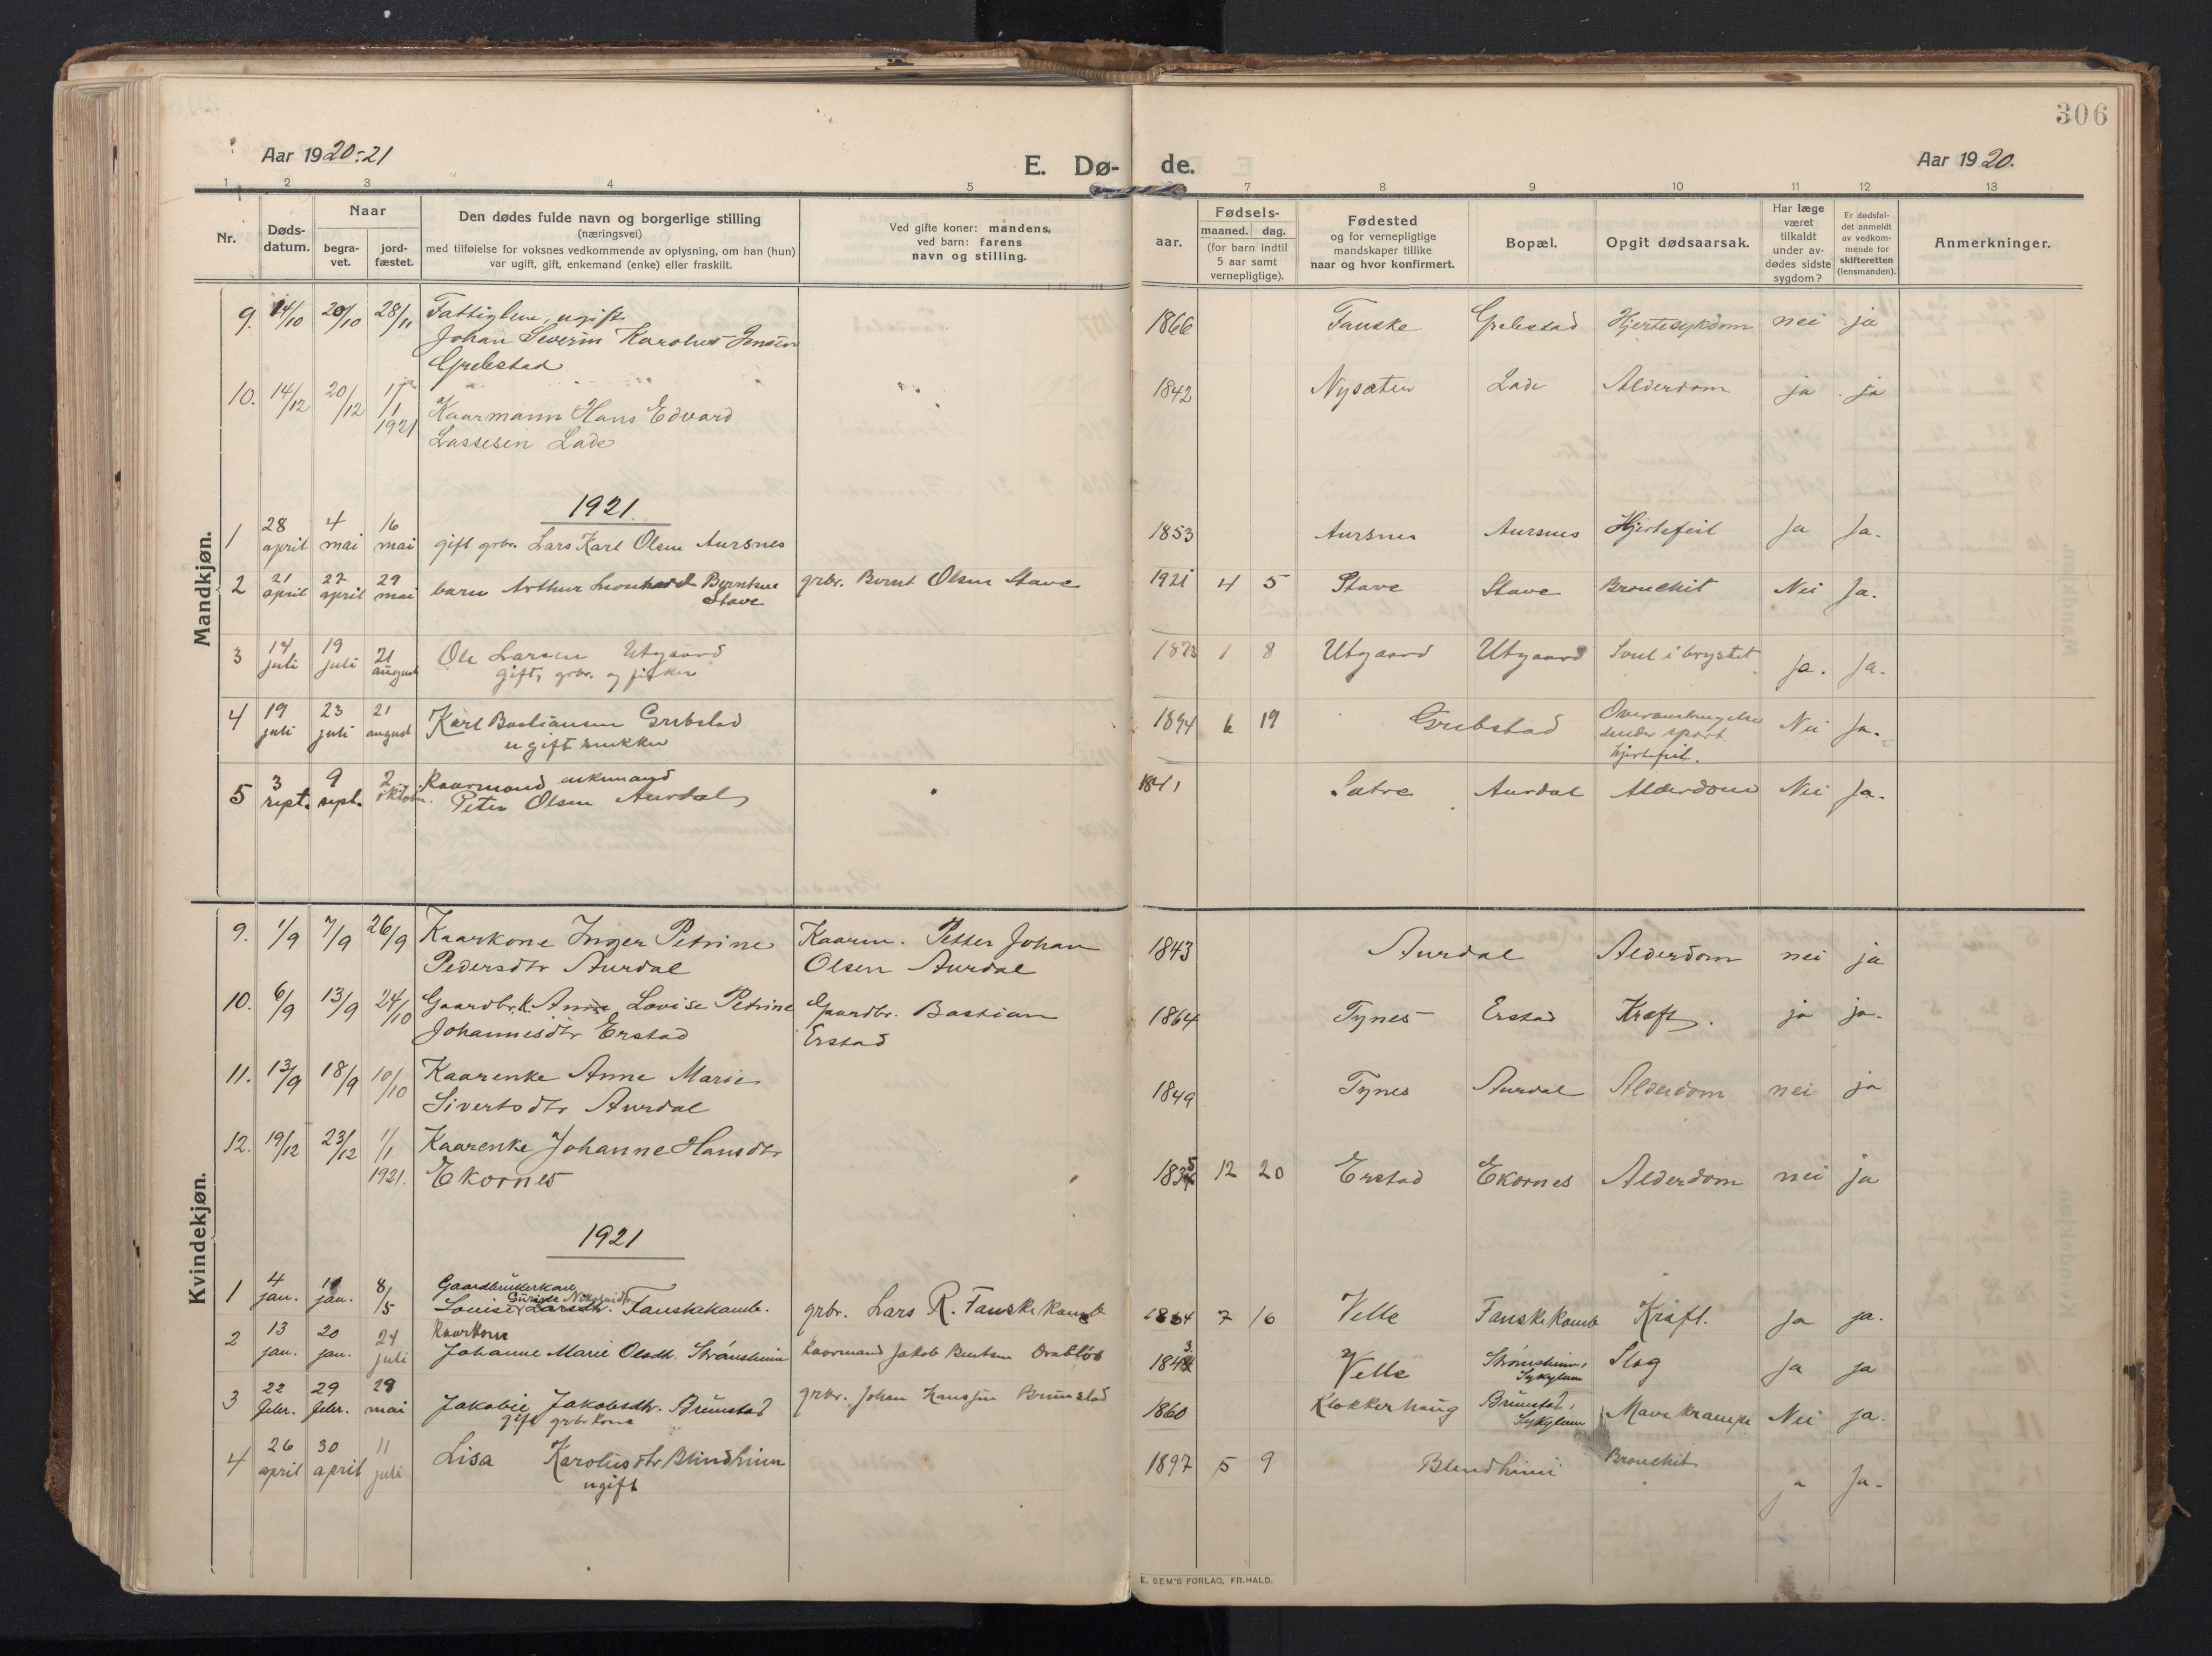 306
Aar 1920-21
E. Dø-
de.
Aar 1920.
1 2 3 4 5 7 8 9 10 11 12 13
Nr.
Døds-
datum.
Naar
begra-
vet.
jord-
fæstet.
Den dødes fulde navn og borgerlige stilling
(næringsvei)
med tilføielse for voksnes vedkommende av oplysning, om han (hun)
var ugift, gift, enkemand (enke) eller fraskilt.
Ved gifte koner: mandens,
ved barn: farens
navn og stilling.
aar.
Fødsels-
maaned. dag.
(for barn indtil
5 aar samt
vernepligtige).
Fødested
og for vernepligtige
mandskaper tillike
naar og hvor konfirmert.
Bopæl.
Opgit dødsaarsak.
Har læge
været
tilkaldt
under av-
dødes sidste
sygdom?
Er dødsfal-
det anmeldt
av vedkom-
mende for
skifteretten
(lensmanden).
Anmerkninger.
Mandkjøn.
9. 14/10 20/10 28/11 Fattiglem, ugift 1866 Fauske Grebstad Hjertesykdom nei ja
Johan Severin Karolus Jensen
Grebstad
10. 14/12 20/12 1/1 1921 1842 Nysæter Lade Alderdom ja ja
Kaarmann Hans Edvard
Lassesen Lade
1921
1 28 april 4 mai 16 mai gift grbr. Lars Karl Olsen Aursnes 1853 Aursnes Aursnes Hjertefeil Ja Ja.
2 21 april 27 april 29 mai barn Arthur Leonhard Berntsen grbr. Bernt Olsen Stave 1921 4 5 Stave Stave Bronchit Nei Ja.
Stave
3 14 juli 19 juli 21 august Ole Larsen Utgaard 1873 1 8 Utgaard Utgaard Svul i brystet Ja. Ja.
gift, grbr. og fisker
4 19 juli 23 juli 21 august Karl Bastiansen Grebstad 1894 6 19 Grebstad Overanstrengelse Nei Ja.
ugift snekker under sport
hjertefeil.
5 3 sept. 9 sept. 2 oktober. Kaarmand enkemand 1841 Satre Aurdal Alderdom Nei Ja.
Peter Olsen Aurdal
Kvindekjøn.
9. 1/9 7/9 26/9 Kaarkone Inger Petrine Kaarm. Petter Johan 1843 Aurdal Alderdom nei ja
Pedersdtr Aurdal Olsen Aurdal
10. 6/9 13/9 24/10 Gaardbr.k. Anne Lovise Petrine Gaardbr. Bastian 1864 Tynes Erstad Kræft. ja ja.
Johannesdtr Erstad Erstad
11. 13/9 18/9 10/10 Kaarenke Anne Marie 1849 Tynes Aurdal Alderdom nei ja
Sivertsdtr Aurdal
12. 19/12 23/12 1/1 1921. Kaarenke Johanne Hansdtr 1835 12 20 Erstad Ekornes Alderdom nei ja
Ekornes
1921
1 4 jan. jan. 8/5 Gaardbrukerkone
Louise Fauskekamb. grbr. Lars R. Fauske kamb 1864 7 16 Velle Fauskekamb Kræft. Ja ja.
2 13 jan. 20 jan. 24 juli Kaarkone
Johanne Marie Olsdtr. Strømsheim Kaarmand Jakob Bentsen Drabløs 1843 Velle Strømsheim, Slag Ja ja
Sykylven
3 22 febr. 29 febr. 29 mai Jakobie Jakobsdtr. Brunstad grbr. Johan Hanssen Brunstad 1860 Klokkerhaug Brunstad, Mavekrampe Nei ja.
gift grbrkone Sykylven
4 26 april 30 april 11 juli Lisa Karolusdtr Blindheim 1897 5 9 Blindheim Bronchit ja Ja.
ugift
E. SEM'S FORLAG, FR.HALD.